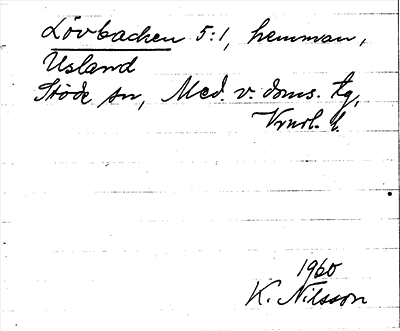 Lövbacken 5:1, hemman,
Usland
Stöde sn, Med. v. doms. tg,
Vnrl. l.
1960
K. Nilsson